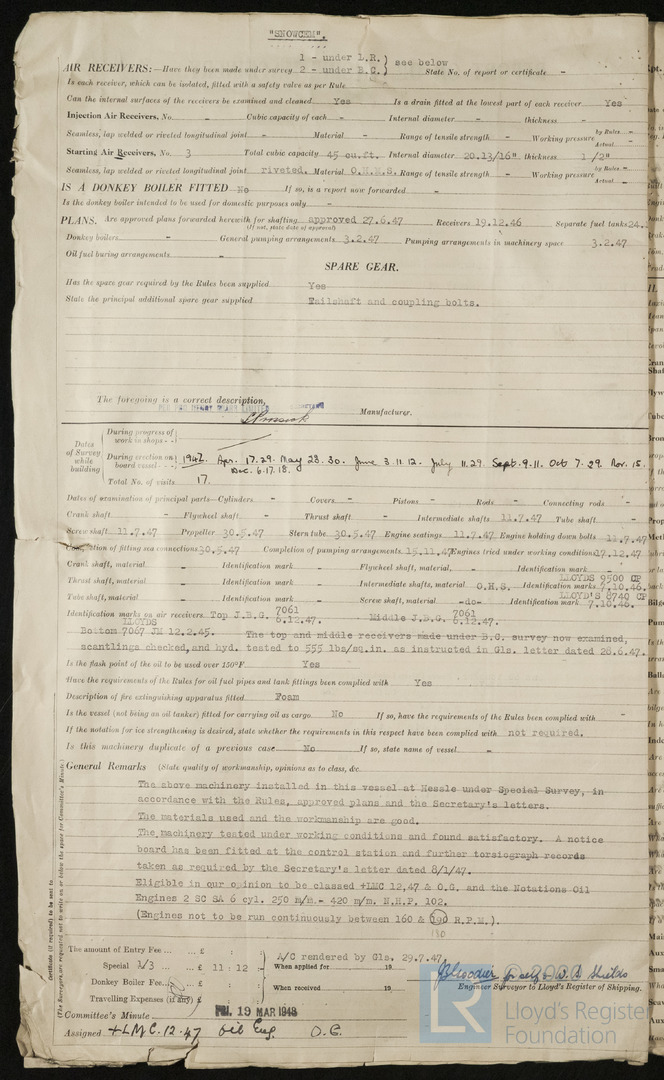 "SNOWCEM".
1 - under L.R.) see below
AIR RECEIVERS:—Have they been made under survey 2 - under B.C.) State No. of report or certificate -
Is each receiver, which can be isolated, fitted with a safety valve as per Rule
Can the internal surfaces of the receivers be examined and cleaned Yes Is a drain fitted at the lowest part of each receiver Yes
Injection Air Receivers, No. - Cubic capacity of each - Internal diameter - thickness -
Seamless, lap welded or riveted longitudinal joint - Material - Range of tensile strength - Working pressure by Rules - Actual -
Starting Air Receivers, No. 3 Total cubic capacity 45 cu.ft. Internal diameter 20.13/16" thickness 1/2"
Seamless, lap welded or riveted longitudinal joint riveted. Material O.H.M.S. Range of tensile strength - Working pressure by Rules - Actual -
IS A DONKEY BOILER FITTED No If so, is a report now forwarded -
Is the donkey boiler intended to be used for domestic purposes only -
PLANS. Are approved plans forwarded herewith for shafting approved 27.6.47 Receivers 19.12.46 Separate fuel tanks 24.
(If not, state date of approval)
Donkey boilers - General pumping arrangements 3.2.47 Pumping arrangements in machinery space 3.2.47
Oil fuel buring arrangements -
SPARE GEAR.
Has the spare gear required by the Rules been supplied Yes
State the principal additional spare gear supplied Tailshaft and coupling bolts.
The foregoing is a correct description,
Manufacturer.
Dates of Survey while building
During progress of work in shops - -
During erection on board vessel - - - 1947. Apr. 17.29. May 23.30. June 3.11.12. July 11.29. Sept. 9.11. Oct 7.29. Nov. 15.
Dec. 6.17.18.
Total No. of visits 17.
Dates of examination of principal parts—Cylinders - Covers - Pistons - Rods - Connecting rods -
Crank shaft - Flywheel shaft - Thrust shaft - Intermediate shafts 11.7.47 Tube shaft -
Screw shaft 11.7.47 Propeller 30.5.47 Stern tube 30.5.47 Engine seatings 11.7.47 Engine holding down bolts 11.7.47
Completion of fitting sea connections 30.5.47 Completion of pumping arrangements 15.11.47 Engines tried under working conditions 17.12.47
Crank shaft, material - Identification mark - Flywheel shaft, material - Identification mark -
LLOYDS 9500 CP
Thrust shaft, material - Identification mark - Intermediate shafts, material O.H.S. Identification marks 7.10.46.
LLOYD'S 8740 CP
Tube shaft, material - Identification mark - Screw shaft, material -do- Identification mark 7.10.46.
Identification marks on air receivers Top J.B.G. 7061 6.12.47. Middle J.B.G. 7061 6.12.47.
LLOYDS
Bottom 7067 JM 12.2.45. The top and middle receivers made under B.C. survey now examined,
scantlings checked, and hyd. tested to 555 lbs/sq.in. as instructed in Gls. letter dated 28.6.47.
Is the flash point of the oil to be used over 150°F. Yes
Have the requirements of the Rules for oil fuel pipes and tank fittings been complied with Yes
Description of fire extinguishing apparatus fitted Foam
Is the vessel (not being an oil tanker) fitted for carrying oil as cargo No If so, have the requirements of the Rules been complied with -
If the notation for ice strengthening is desired, state whether the requirements in this respect have been complied with not required.
Is this machinery duplicate of a previous case No If so, state name of vessel -
General Remarks (State quality of workmanship, opinions as to class, &c.
The above machinery installed in this vessel at Hessle under Special Survey, in
accordance with the Rules, approved plans and the Secretary's letters.
The materials used and the workmanship are good.
The machinery tested under working conditions and found satisfactory. A notice
board has been fitted at the control station and further torsiograph records
taken as required by the Secretary's letter dated 8/1/47.
Eligible in our opinion to be classed +LMC 12,47 & O.G. and the Notations Oil
Engines 2 SC SA 6 cyl. 250 m/m.- 420 m/m. N.H.P. 102.
(Engines not to be run continuously between 160 & 190 R.P.M.).
190
Certificate (if required) to be sent to
(The Surveyors are requested not to write on or below the space for Committee's Minute.)
The amount of Entry Fee ... £ : :
Special 1/3 ... £ 11 : 12 :
Donkey Boiler Fee... £ : :
Travelling Expenses (if any) £ : :
A/C rendered by Gls. 29.7.47.
When applied for 19
When received 19
for self & W. B. Shields
Engineer Surveyor to Lloyd's Register of Shipping.
Committee's Minute FRI. 19 MAR 1948
Assigned +LMC. 12.47 Oil Eng. O.G.
LR
Lloyd's Register
Foundation